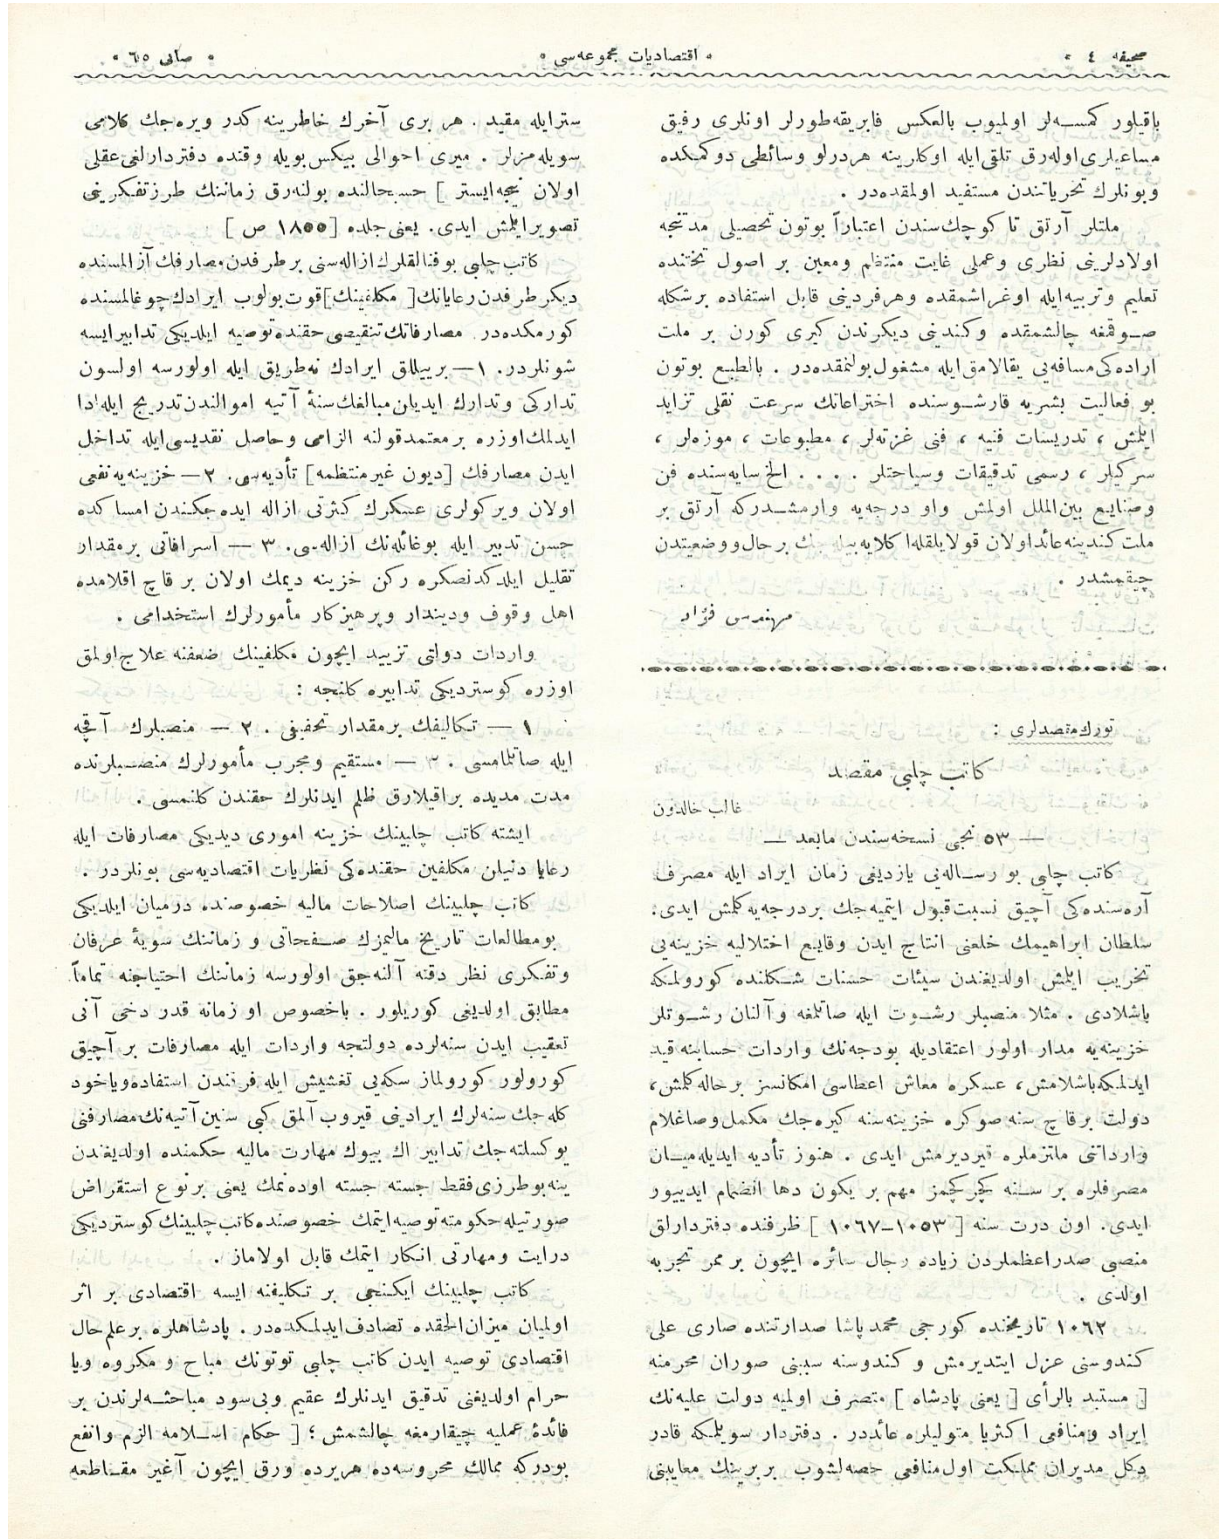 صحیفه ٤ •
• اقتصادیات مجموعه‌سی •
• صائی ٦٥ •
باقیلور کمسه‌لر اولمیوب بالعکس فابریقه‌طورلر اونلری رفیق
مساعیلری اوله‌رق تلقی ایله اوکارینه هردرلو وسائطی دوکمکده
وبونلرك تحریاتندن مستفید اولمقده‌در .
ملتلر آرتق تا کوچك سندن اعتباراً بوتون تحصیلی مدتنجه
اولادلرینی نظری وعملی غایت منتظم ومعین بر اصول تحتنده
تعلیم وتربیه‌ایله اوغراشمقده وهرفردینی قابل استفاده برشکله
صوقمغه چالشمقده وکندینی دیکرندن کیری کورن بر ملت
اراده‌کی مسافه‌یی یقالامق ایله مشغول بولنمقده‌در . بالطبع بوتون
بو فعالیت بشریه قارشوسنده اختراعاتك سرعت نقلی تزاید
ایلمش ، تدریسات فنیه ، فنی غزته‌لر ، مطبوعات ، موزه‌لر ،
سرکیلر ، رسمی تدقیقات وسیاحتلر . . . . الخ سایه‌سنده فن
وصنایع بین‌الملل اولمش واو درجه‌یه وارمشدرکه آرتق بر
ملت کندینه عائد اولان قولایلقله اکلایه‌بیله‌جك برحال ووضعیتدن
چیقمشدر .
مهندس فؤاد
تورك مقتصدلری :
کاتب چلبی مقتصد
غالب خالدون
— ٥٣ نجی نسخه‌سندن مابعد —
کاتب چلبی بو رساله‌یی یازدیغی زمان ایراد ایله مصرف
آره‌سنده‌کی آچیق نسبت قبول ایتمیه‌جك بردرجه‌یه کلمش ایدی.
سلطان ابراهیمك خلعنی انتاج ایدن وقایع اختلالیه خزینه‌یی
تخریب ایلمش اولدیغندن سیئات حسنات شکلنده کورولمکه
باشلادی . مثلا منصبلر رشوت ایله صاتلمغه و آلنان رشوتلر
خزینه‌یه مدار اولور اعتقادیله بودجه‌نك واردات حسابنه قید
ایدلمکه باشلامش، عسکره معاش اعطاسی امکانسز برحاله کلمش،
دولت برقاچ سنه صوکره خزینه‌سنه کیره‌جك مکمل وصاغلام
وارداتنی ملتزملره قیردیرمش ایدی . هنوز تأدیه ایدیله‌میان
مصرفلره بر سنه کچرکچمز مهم بر یکون دها انضمام ایدییور
ایدی. اون درت سنه [ ١٠٥٣–١٠٦٧ ] ظرفنده دفتردارلق
منصبی صدراعظملردن زیاده رجال سائره ایچون بر ممر تجربه
اولدی .
١٠٦٢ تاریخنده کورجی محمد پاشا صدارتنده صاری علی
کندوسنی عزل ایتدیرمش و کندوسنه سببنی صوران محرمنه
[ مستبد بالرأی [ یعنی پادشاه ] متصرف اولمیه دولت علیه‌نك
ایراد ومنافعی اکثریا متولیلره عائددر . دفتردار سویلمکه قادر
دکل مدیران مملکت اول منافعی حصه‌لشوب بربرینك معایبنی
سترایله مقید . هر بری آخرك خاطرینه کدر ویره‌جك کلامی
سویله‌مزلر . میری احوالی بیکس بویله وقتده دفتردارلغی عقلی
اولان نیجه‌ایستر ] حسبحالنده بولنه‌رق زماننك طرز تفکرینی
تصویر ایلمش ایدی. یعنی جلده [ ١٨٥٥ ص ]
کاتب چلبی بو فنالقلرك ازاله‌سنی برطرفدن مصارفك آزالمسنده
دیکر طرفدن رعایانك [ مکلفینك] قوت بولوب ایرادك چوغالمسنده
کورمکده‌در. مصارفاتك تنقیصی حقنده توصیه ایلدیکی تدابیر ایسه
شونلردر. ١— بریيللق ایرادك نه‌طریق ایله اولورسه اولسون
تدارکی وتدارك ایدیلن مبالغك سنهٔ آتیه اموالندن تدریج ایله ادا
ایدلمك اوزره بر معتمد قولنه الزامی وحاصل نقدیسی ایله تداخل
ایدن مصارفك [دیون غیر منتظمه] تأدیه‌سی. ٢— خزینه‌یه نفعی
اولان ویرکولری عسکرك کثرتی ازاله ایده‌جکندن امساکده
حسن تدبیر ایله بوغائله‌نك ازاله‌سی. ٣ — اسرافاتی برمقدار
تقلیل ایلدکدنصکره رکن خزینه دیمك اولان بر قاچ اقلامده
اهل وقوف ودیندار وپرهیزکار مأمورلرك استخدامی .
واردات دولتی تزیید ایچون مکلفینك ضعفنه علاج اولمق
اوزره کوستردیکی تدابیره کلنجه :
١ — تکالیفك برمقدار تخفیفی . ٢ — منصبلرك آقچه
ایله صاتلمامسی . ٣ — مستقیم ومجرب مأمورلرك منصبلرنده
مدت مدیده براقیلارق ظلم ایدنلرك حقندن کلنمسی .
ایشته کاتب چلبینك خزینه اموری دیدیکی مصارفات ایله
رعایا دنیلن مکلفین حقنده‌کی نظریات اقتصادیه‌سی بونلردر .
کاتب چلبینك اصلاحات مالیه خصوصنده درمیان ایلدیکی
بومطالعات تاریخ مالیمزك صفحاتی و زماننك سویهٔ عرفان
وتفکری نظر دقته آلنه‌جق اولورسه زماننك احتیاجنه تماماً
مطابق اولدیغی کوریلور . باخصوص او زمانه قدر دخی آنی
تعقیب ایدن سنه‌لرده دولتجه واردات ایله مصارفات بر آچیق
کورولور کورولماز سکه‌یی تغشیش ایله فرقندن استفاده ویاخود
کله‌جك سنه‌لرك ایرادینی قیروب آلمق کبی سنین آتیه‌نك مصارفنی
یوکسلته‌جك تدابیر اك بیوك مهارت مالیه حکمنده اولدیغندن
ینه بوطرزی فقط جسته جسته اوده‌نمك یعنی بر نوع استقراض
صورتیله حکومته توصیه ایتمك خصوصنده کاتب چلبینك کوستردیکی
درایت ومهارتی انکار ایتمك قابل اولاماز .
کاتب چلبینك ایکنجی بر تکلیفنه ایسه اقتصادی بر اثر
اولمیان میزان الحقده تصادف ایدلمکده‌در . پادشاهلره بر علم حال
اقتصادی توصیه ایدن کاتب چلبی توتونك مباح و مکروه ویا
حرام اولدیغنی تدقیق ایدنلرك عقیم وبی‌سود مباحثه‌لرندن بر
فائدهٔ عملیه چیقارمغه چالشمش؛ [ حکام اسلامه الزم وانفع
بودرکه ممالك محروسه‌ده هریرده ورق ایچون آغیر مقاطعه